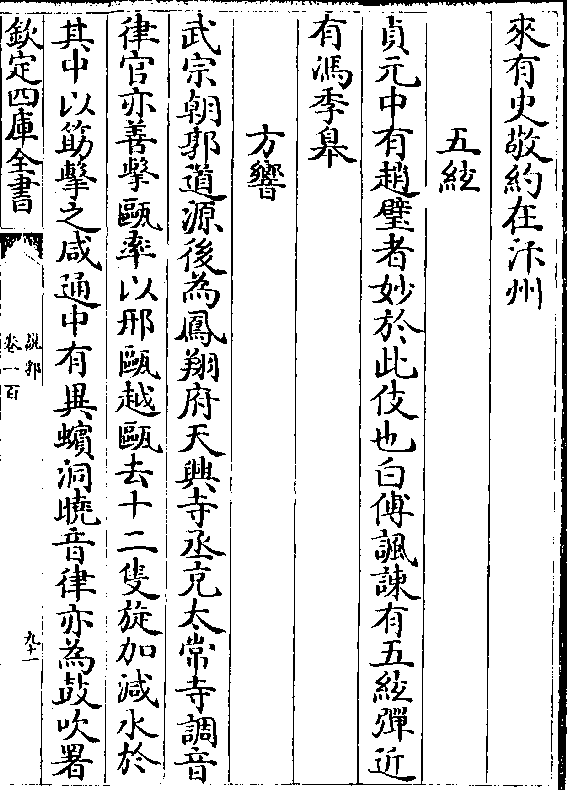 來有史敬約在汴州
五絃
貞元中有趙璧者妙於此伎也白傅諷諫有五絃彈近
有馮季皋
方響
武宗朝郭道源後為鳳翔府天興寺丞充太常寺調音
律官亦善擊甌率以邢甌越甌去十二隻旋加減水於
其中以筯擊之咸通中有異蠙洞曉音律亦為鼓吹署
欽定四庫全書
說郛
卷一百
九十一